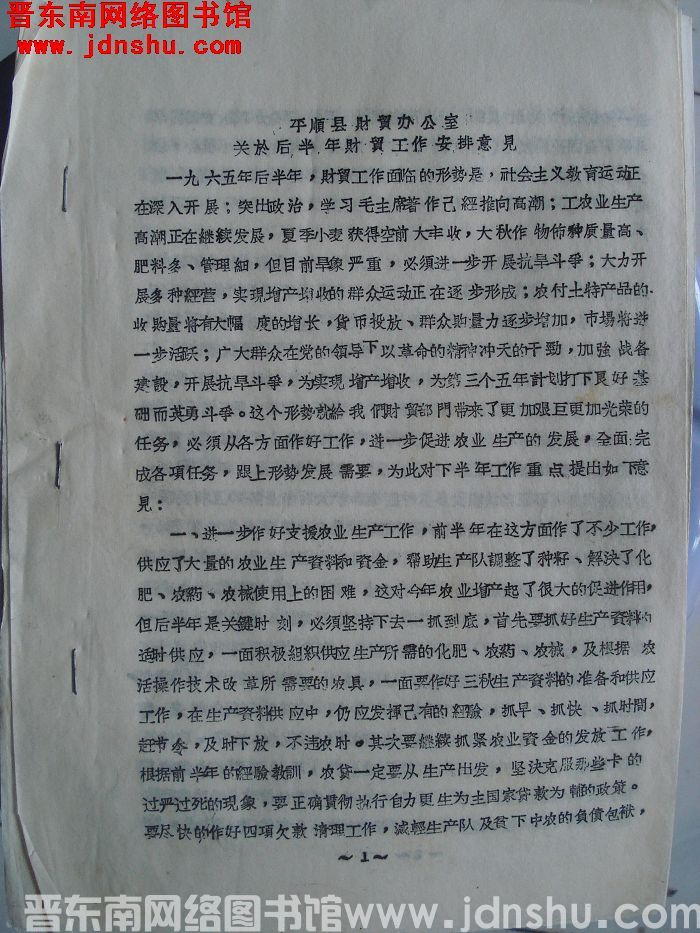 晋东南网络图书馆
www.jdnshu.com
平順县財貿办公室
关於后半年財貿工作安排意見
一九六五年后半年，財貿工作面临的形势是，社会主义教育运动正
在深入开展；突出政治，学习毛主席著作己經推向高潮；工农业生产
高潮正在継续发展，夏季小麦获得空前大丰收，大秋作物佈种质量高、
肥料多、管理細，但目前旱象严重，必須进一步开展抗旱斗爭；大力开
展多种經营，实現增产增收的群众运动正在逐步形成；农付土特产品的
收购量将有大幅度的增长，货币投放、群众购量力逐步增加，市場将进
一步活跃；广大群众在党的領导下以革命的精神冲天的干勁，加強战备
建設，开展抗旱斗爭，为实現增产增收，为第三个五年計划打下良好基
础而英勇斗爭。这个形势就給我們財貿部門带来了更加艰巨更加光荣的
任务，必須从各方面作好工作，进一步促进农业生产的发展，全面完
成各項任务，跟上形势发展需要，为此对下半年工作重点提出如下意
見：
一、进一步作好支援农业生产工作，前半年在这方面作了不少工作，
供应了大量的农业生产資料和資金，帮助生产队調整了种籽、解决了化
肥、农药、农械使用上的困难，这对今年农业增产起了很大的促进作用，
但后半年是关鍵时刻，必須坚持下去一抓到底，首先要抓好生产資料的
适时供应，一面积极組织供应生产所需的化肥、农药、农械，及根据农
活操作技术改革所需要的农具，一面要作好三秋生产資料的准备和供应
工作，在生产資料供应中，仍应发揮己有的經驗，抓早、抓快、抓时間，
赶节令，及时下放，不违农时。其次要継续抓紧农业資金的发放工作，
根据前半年的經驗教訓，农貸一定要从生产出发，坚决克服那些卡的
过严过死的現象，要正确貫彻执行自力更生为主国家貸款为輔的政策。
要尽快的作好四項欠款清理工作，減輕生产队及貧下中农的负債包袱，
～1～
晋东南网络图书馆 www.jdnshu.com